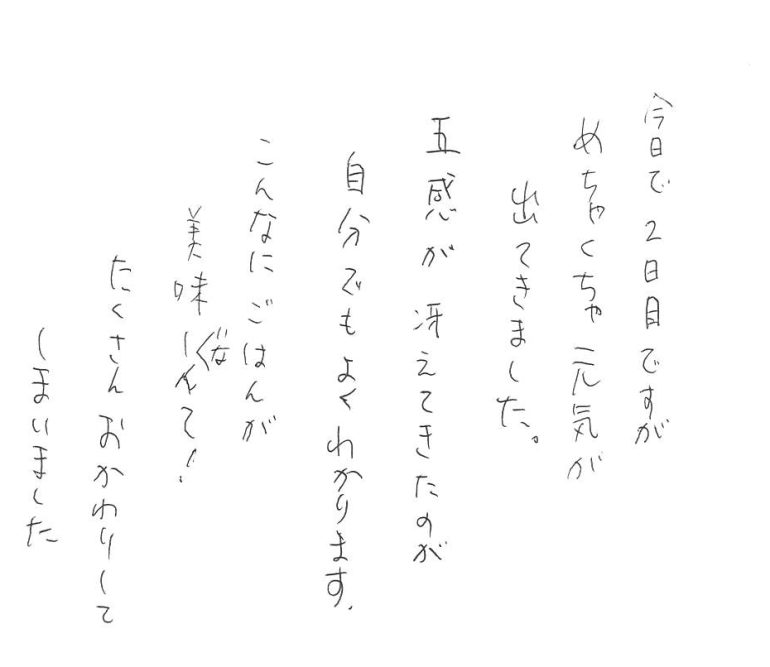 今日で2日目ですが
めちゃくちゃ元気が
出てきました。
五感が冴えてきたのが
自分でもよくわかります.
こんなにごはんが
美味しくんて!
だな
たくさんおかわりして
しまいました